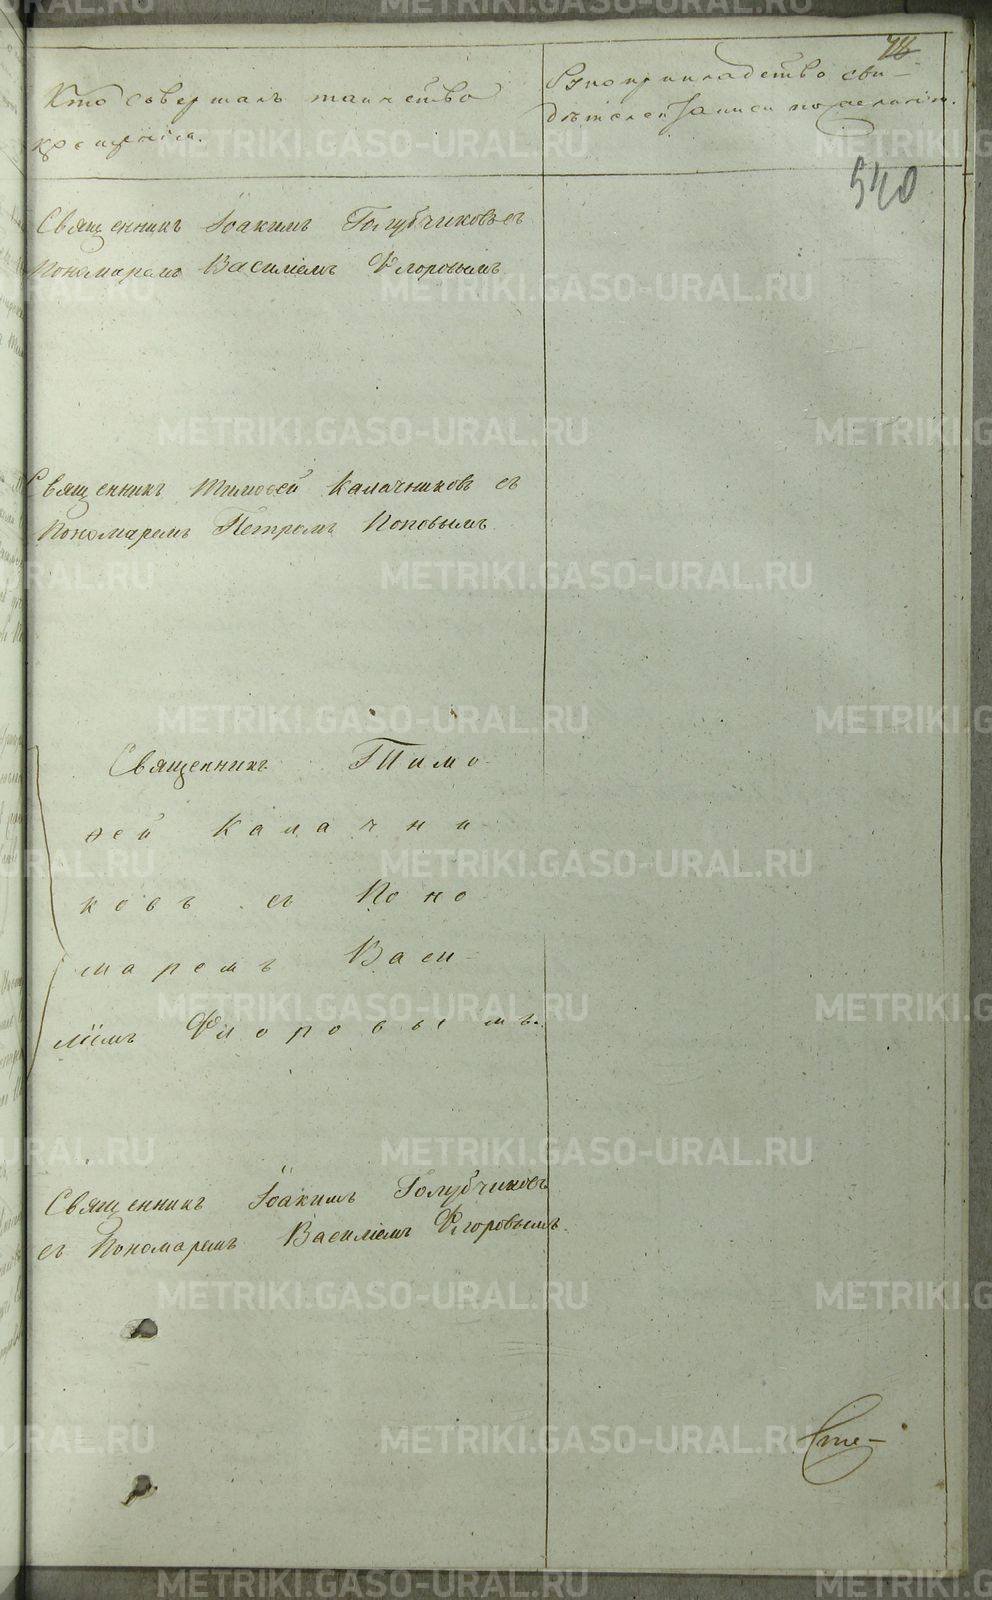 78
Кто совершалъ таинство
крещенія.
Рукоприкладство сви-
дѣтелей записи по желанію.
540
Священникъ Іоакимъ Голубчиковъ съ
Пономаремъ Василіемъ Флоровымъ
Священникъ Тимоѳей Калачниковъ съ
Пономаремъ Петромъ Поповымъ
Священникъ Тимо-
ѳей Калачни-
ковъ съ Поно-
маремъ Васи-
ліемъ Флоровымъ.
Священникъ Іоакимъ Голубчиковъ
съ Пономаремъ Василіемъ Флоровымъ.
METRIKI.GASO-URAL.RU